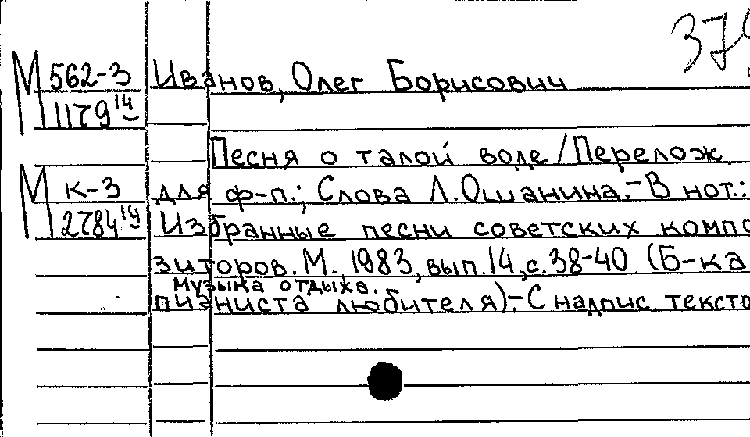 379
М 562-3 Иванов, Олег Борисович
1179 14
Песня о талой воде / Перелож
М К-3 для ф-п.; Слова Л. Ошанина.- В нот.:
2784 14 Избранные песни советских компо
зиторов. М., 1983, вып. 14, с. 38-40 (Б-ка
Музыка отдыха.
пианиста любителя).- С надпис. тексто